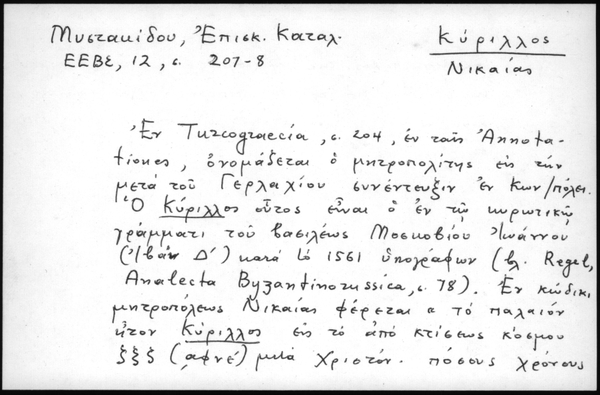 Μυστακίδου, Ἐπισκ. Καταλ.
ΕΕΒΣ, 12, σ. 207-8
Κύριλλος
Νικαίας
Ἐν Turcograecia, σ. 204, ἐν ταῖς Annota-
tiones, ὀνομάζεται ὁ μητροπολίτης εἰς τὴν
μετὰ τοῦ Γερλαχίου συνέντευξιν ἐν Κων/πόλει.
Ὁ Κύριλλος οὗτος εἶναι ὁ ἐν τῷ κυρωτικῷ
γράμματι τοῦ βασιλέως Μοσκοβίου Ἰωάννου
(Ἰβὰν Δ') κατὰ τὸ 1561 ὑπογράφων (βλ. Regel,
Analecta Byzantinorussica, σ. 78). Ἐν κώδικι
μητροπόλεως Νικαίας φέρεται « τὸ παλαιὸν
ἦτον Κύριλλος εἰς τὸ ἀπὸ κτίσεως κόσμου
ξξξ (͵αφνέ) μετὰ Χριστόν. πόσους χρόνους